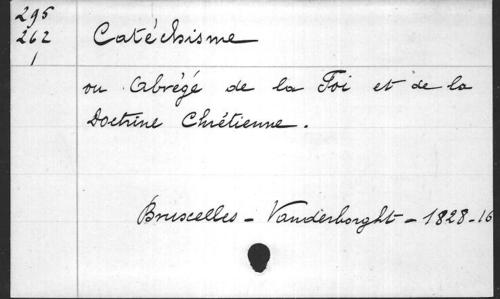 295
262 Catéchisme
1
ou Abrégé de la Foi et de la
Doctrine Chrétienne.
Bruxelles - Vanderborght - 1828-16